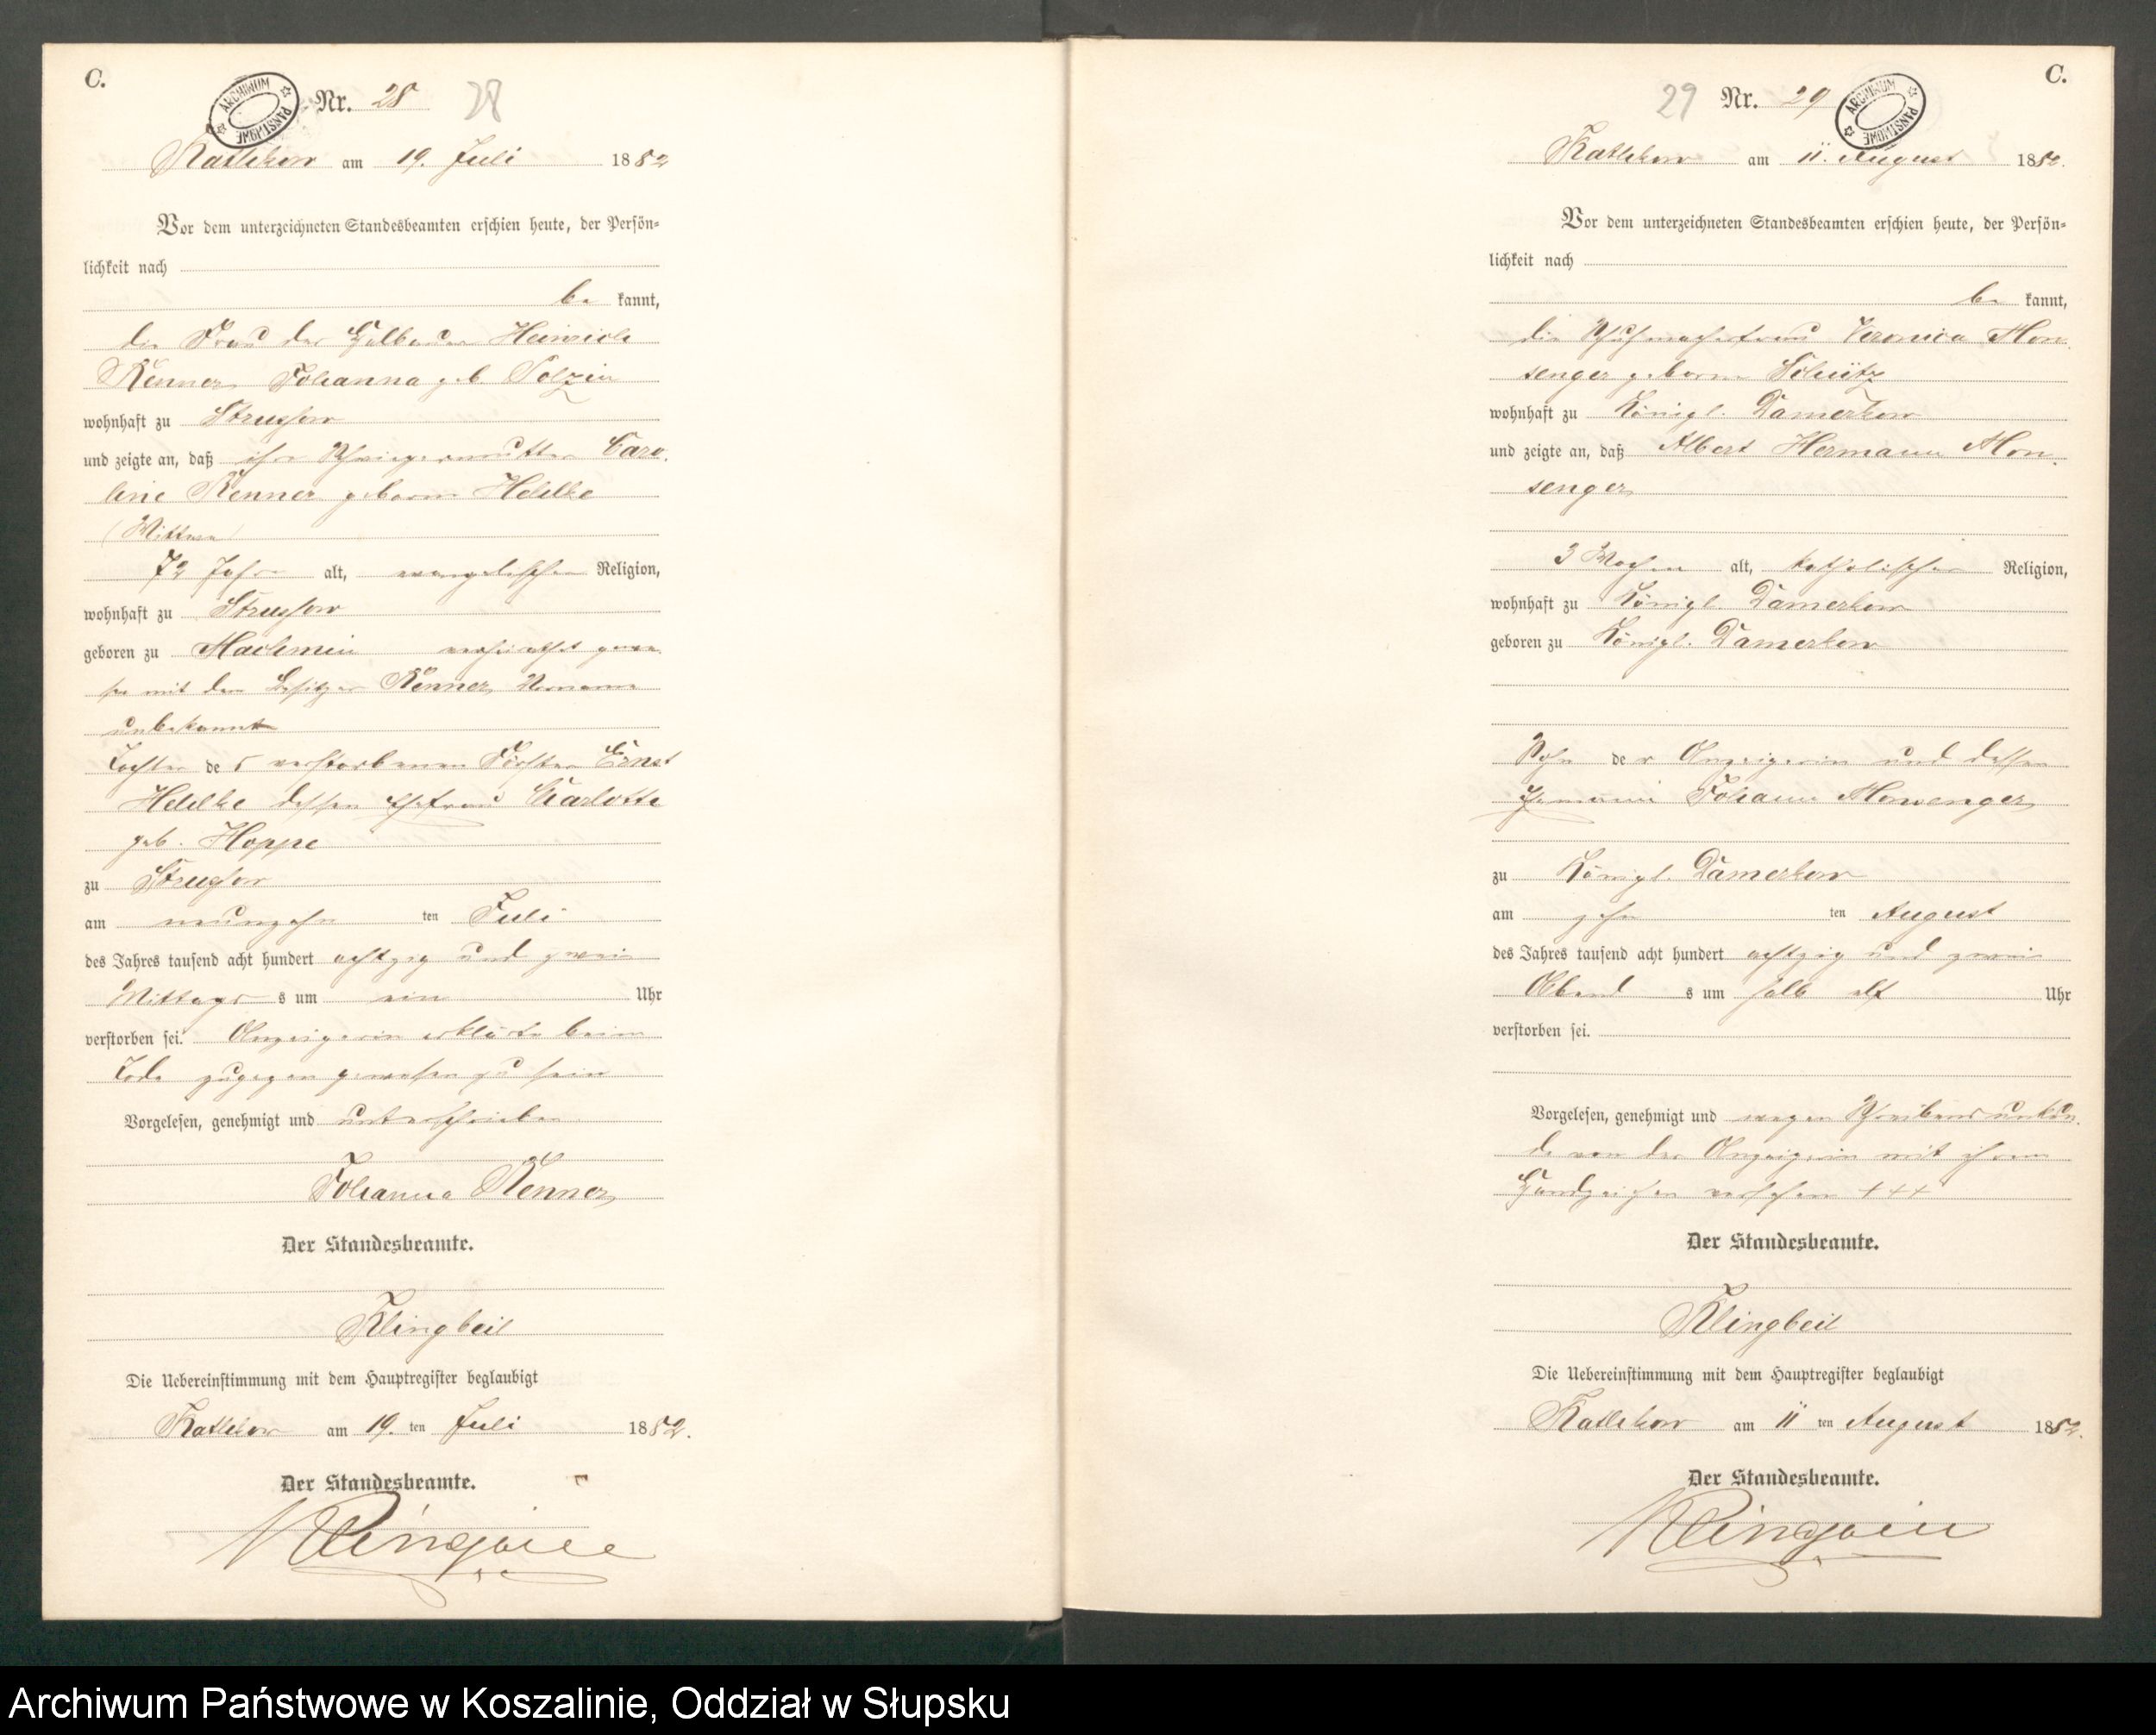 C.
ARCHIWUM PAŃSTWOWE
Nr. 28 28
Katschow am 19. Juli 1882
Vor dem unterzeichneten Standesbeamten erschien heute, der Persön-
lichkeit nach
be kannt,
die Frau des Halbbauer Heinrich
Renner Johanna geb Polzin
wohnhaft zu Strussow
und zeigte an, daß ihre Schwiegermutter Caro-
line Renner geborene
(Wittwe)
72 Jahre alt, evangelischer Religion,
wohnhaft zu Strussow
geboren zu verheirathet gewe-
sen mit dem Besitzer Renner, Vorname
unbekannt
Tochter des verstorbenen Förster Ernst
dessen Ehefrau Charlotte
geb. Hoppe
zu Strussow
am neunzehn ten Juli
des Jahres tausend acht hundert achtzig und zwei
Mittags s um ein Uhr
verstorben sei. Anzeigerin erklärte beim
Tode zugegen gewesen zu sein
Vorgelesen, genehmigt und unterschrieben
Johanna Renner
Der Standesbeamte.
Klingbeil
Die Uebereinstimmung mit dem Hauptregister beglaubigt
am 19. ten Juli 1882.
Der Standesbeamte.
Klingbeil
C.
29 Nr. 29
ARCHIWUM PAŃSTWOWE
am 11. August 1882.
Vor dem unterzeichneten Standesbeamten erschien heute, der Persön-
lichkeit nach
be kannt,
die Schuhmacherfrau Veronica Mon-
senger geborne Schütz
wohnhaft zu Königl. Damerkow
und zeigte an, daß Albert Hermann Mon-
senger
3 Wochen alt, katholischer Religion,
wohnhaft zu Königl. Damerkow
geboren zu Königl. Damerkow
Sohn der Anzeigerin und dessen
Ehemann Johann Monsenger
zu Königl. Damerkow
am zehn ten August
des Jahres tausend acht hundert achtzig und zwei
Abend s um halb elf Uhr
verstorben sei.
Vorgelesen, genehmigt und wegen Schreibensunkun-
de von der Anzeigerin mit ihrem
Handzeichen versehen +++
Der Standesbeamte.
Klingbeil
Die Uebereinstimmung mit dem Hauptregister beglaubigt
am 11 ten August 1882.
Der Standesbeamte.
Klingbeil
Archiwum Państwowe w Koszalinie, Oddział w Słupsku